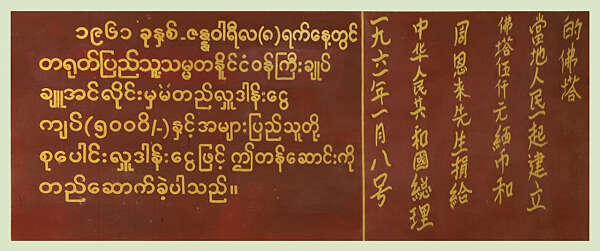 ၁၉၆၁ ခုနှစ်.ဇန္နဝါရီလ(၈)ရက်နေ့တွင်
တရုတ်ပြည်သူ့သမ္မတနိူင်ငံဝန်ကြီးချုပ်
ချူအင်လိုင်းမှမဲတည်လှူဒါန်းငွေ
ကျပ်(၅၀၀၀ိ/-)နှင့်အများပြည်သူတို့
စုပေါင်းလှူဒါန်းငွေဖြင့် ဤတန်ဆောင်းကို
တည်ဆောက်ခဲ့ပါသည်။
一九六一年一月八号
中华人民共和國總理
周恩来先生捐給
佛塔伍仟元緬币和
當地人民一起建立
的佛塔